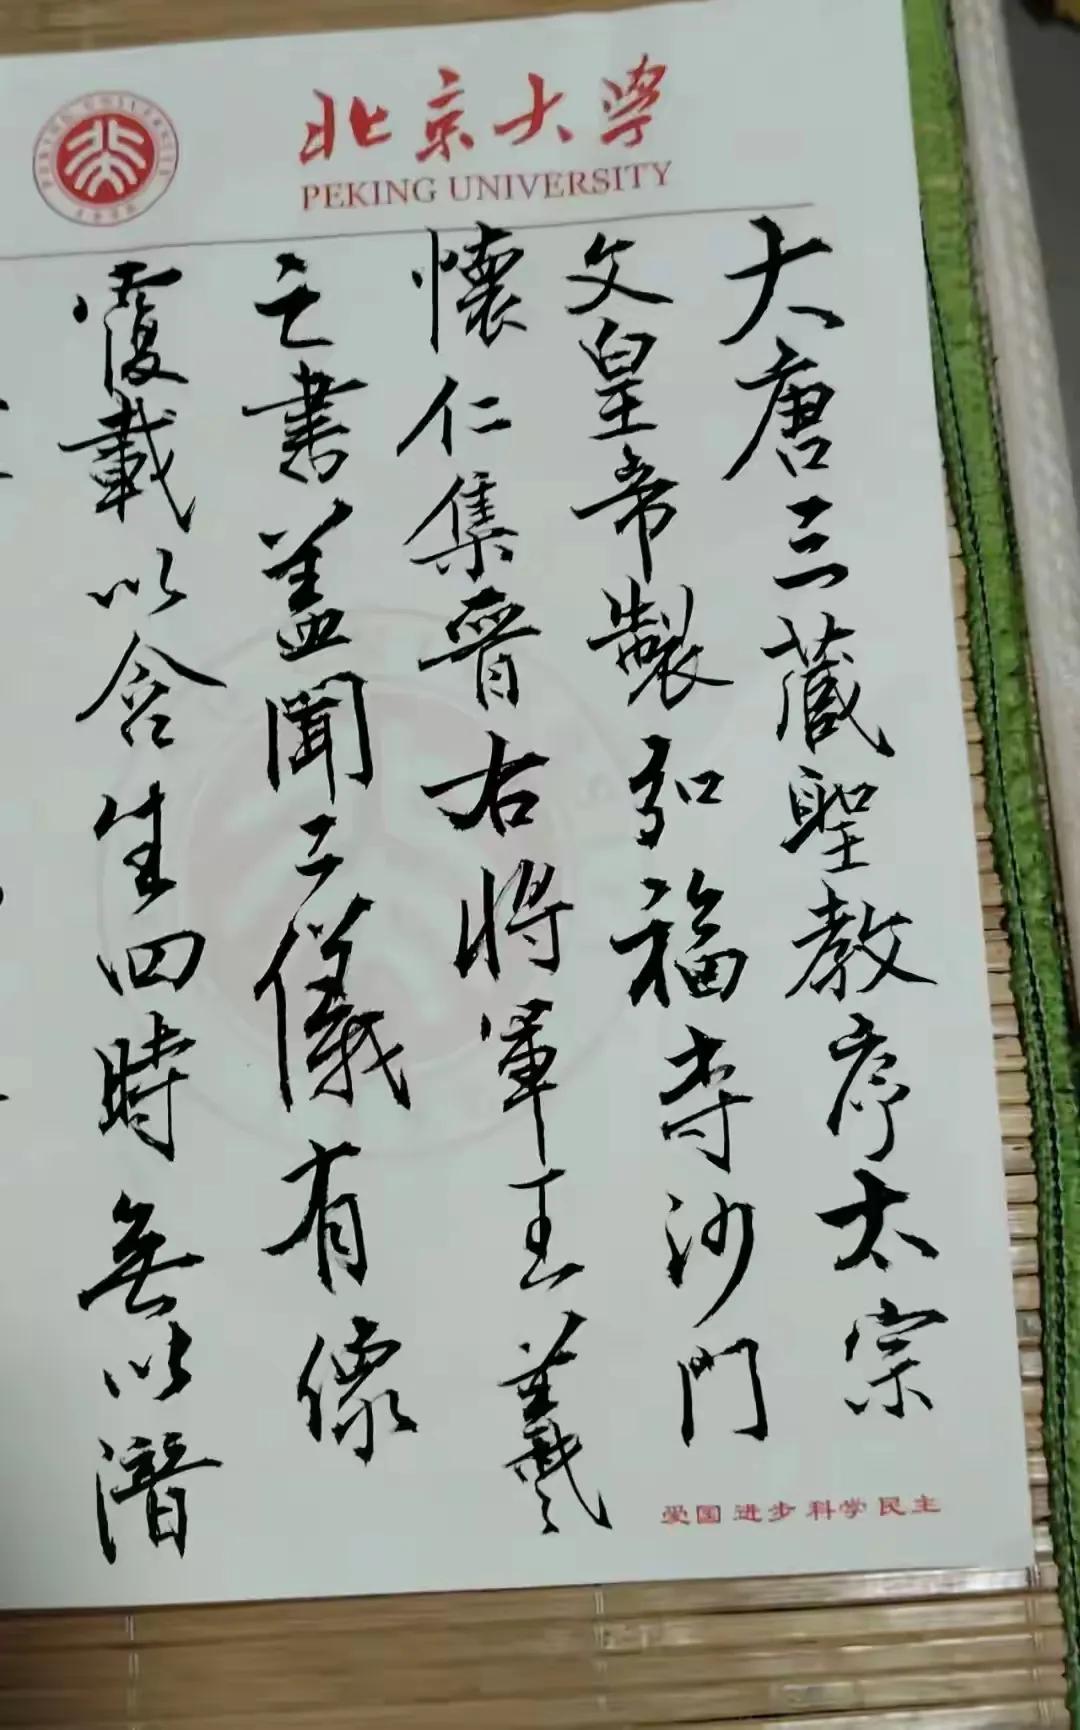 北京大学
PEKING UNIVERSITY
大唐三藏聖教序太宗
文皇帝製弘福寺沙門
懷仁集晉右將軍王羲
之書蓋聞二儀有像
覆載以含生四時無以潛
爱国 进步 科学 民主